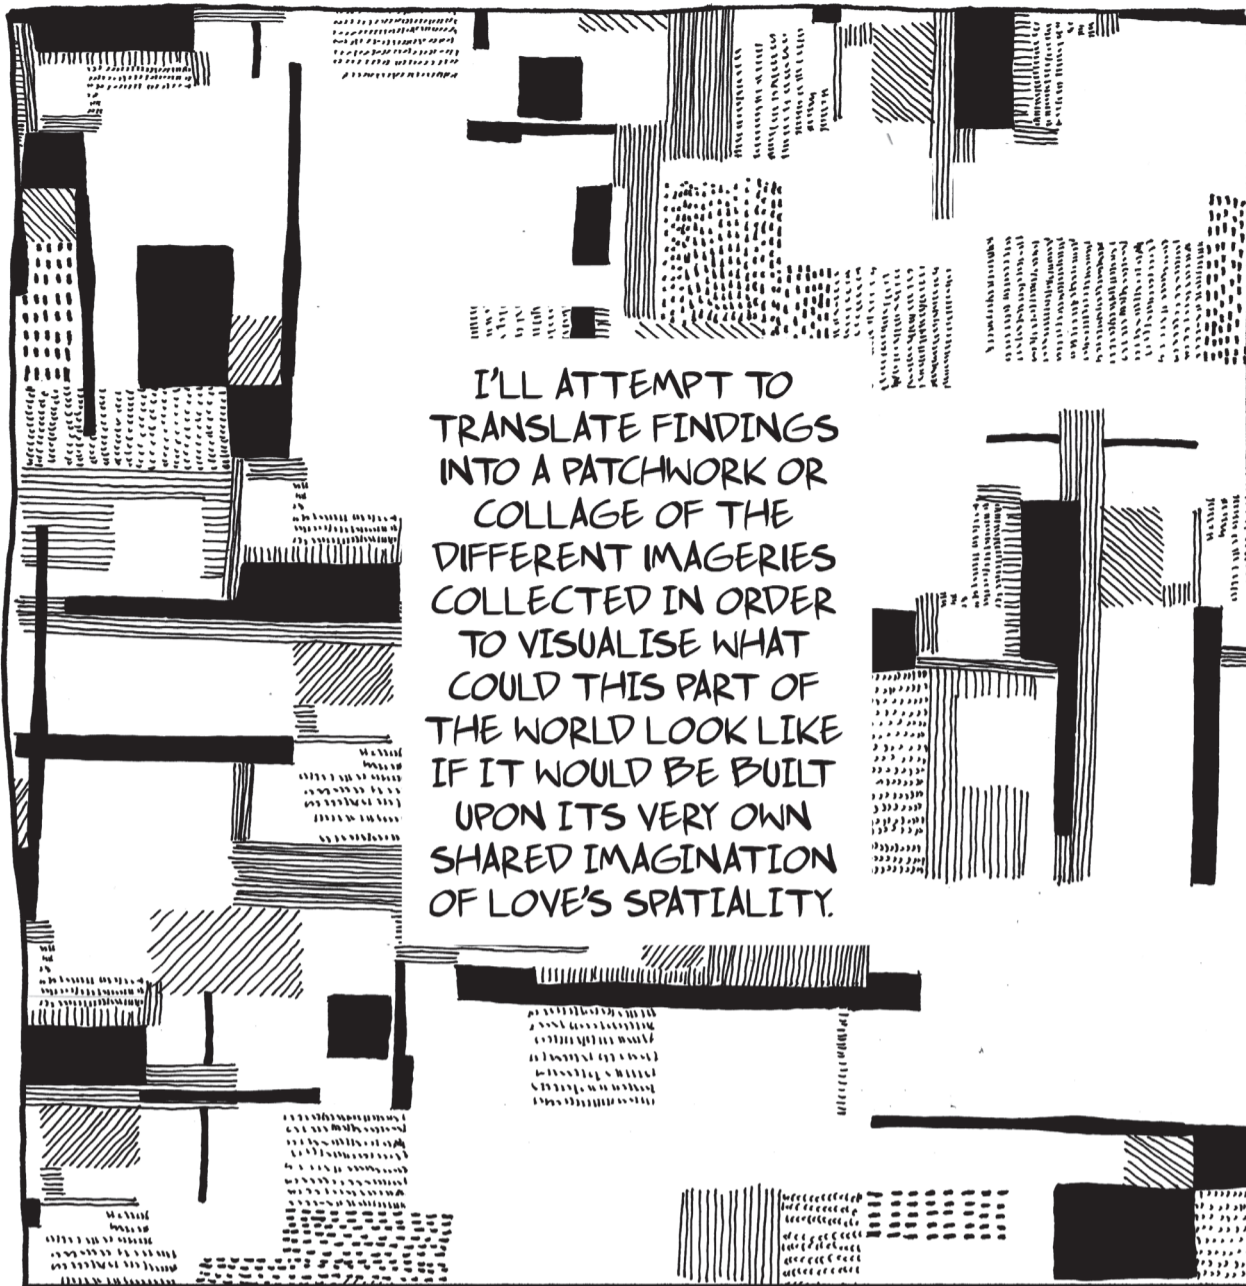 I'LL ATTEMPT TO
TRANSLATE FINDINGS
INTO A PATCHWORK OR
COLLAGE OF THE
DIFFERENT IMAGERIES
COLLECTED IN ORDER
TO VISUALISE WHAT
COULD THIS PART OF
THE WORLD LOOK LIKE
IF IT WOULD BE BUILT
UPON ITS VERY OWN
SHARED IMAGINATION
OF LOVE'S SPATIALITY.